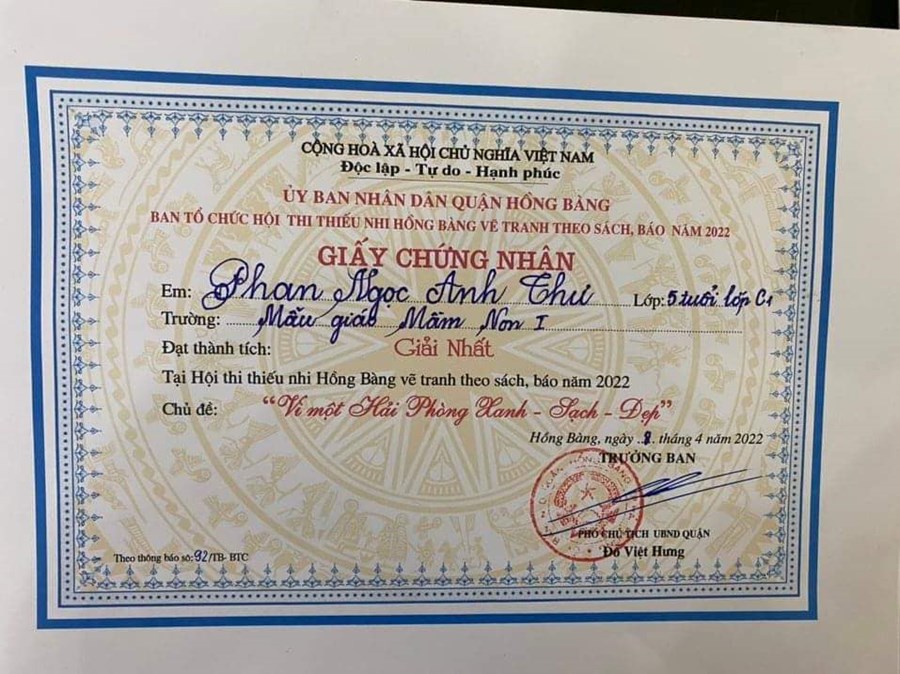 CỘNG HOÀ XÃ HỘI CHỦ NGHĨA VIỆT NAM
Độc lập - Tự do - Hạnh phúc
ỦY BAN NHÂN DÂN QUẬN HỒNG BÀNG
BAN TỔ CHỨC HỘI THI THIẾU NHI HỒNG BÀNG VẼ TRANH THEO SÁCH, BÁO NĂM 2022
GIẤY CHỨNG NHẬN
Em: Phan Ngọc Anh Thư Lớp: 5 tuổi lớp C1
Trường: Mẫu giáo Mầm Non I
Đạt thành tích: Giải Nhất
Tại Hội thi thiếu nhi Hồng Bàng vẽ tranh theo sách, báo năm 2022
Chủ đề: “Vì một Hải Phòng Xanh - Sạch - Đẹp”
Hồng Bàng, ngày 8 tháng 4 năm 2022
TRƯỞNG BAN
PHÓ CHỦ TỊCH UBND QUẬN
Đỗ Việt Hưng
Theo thông báo số: 92/TB- BTC